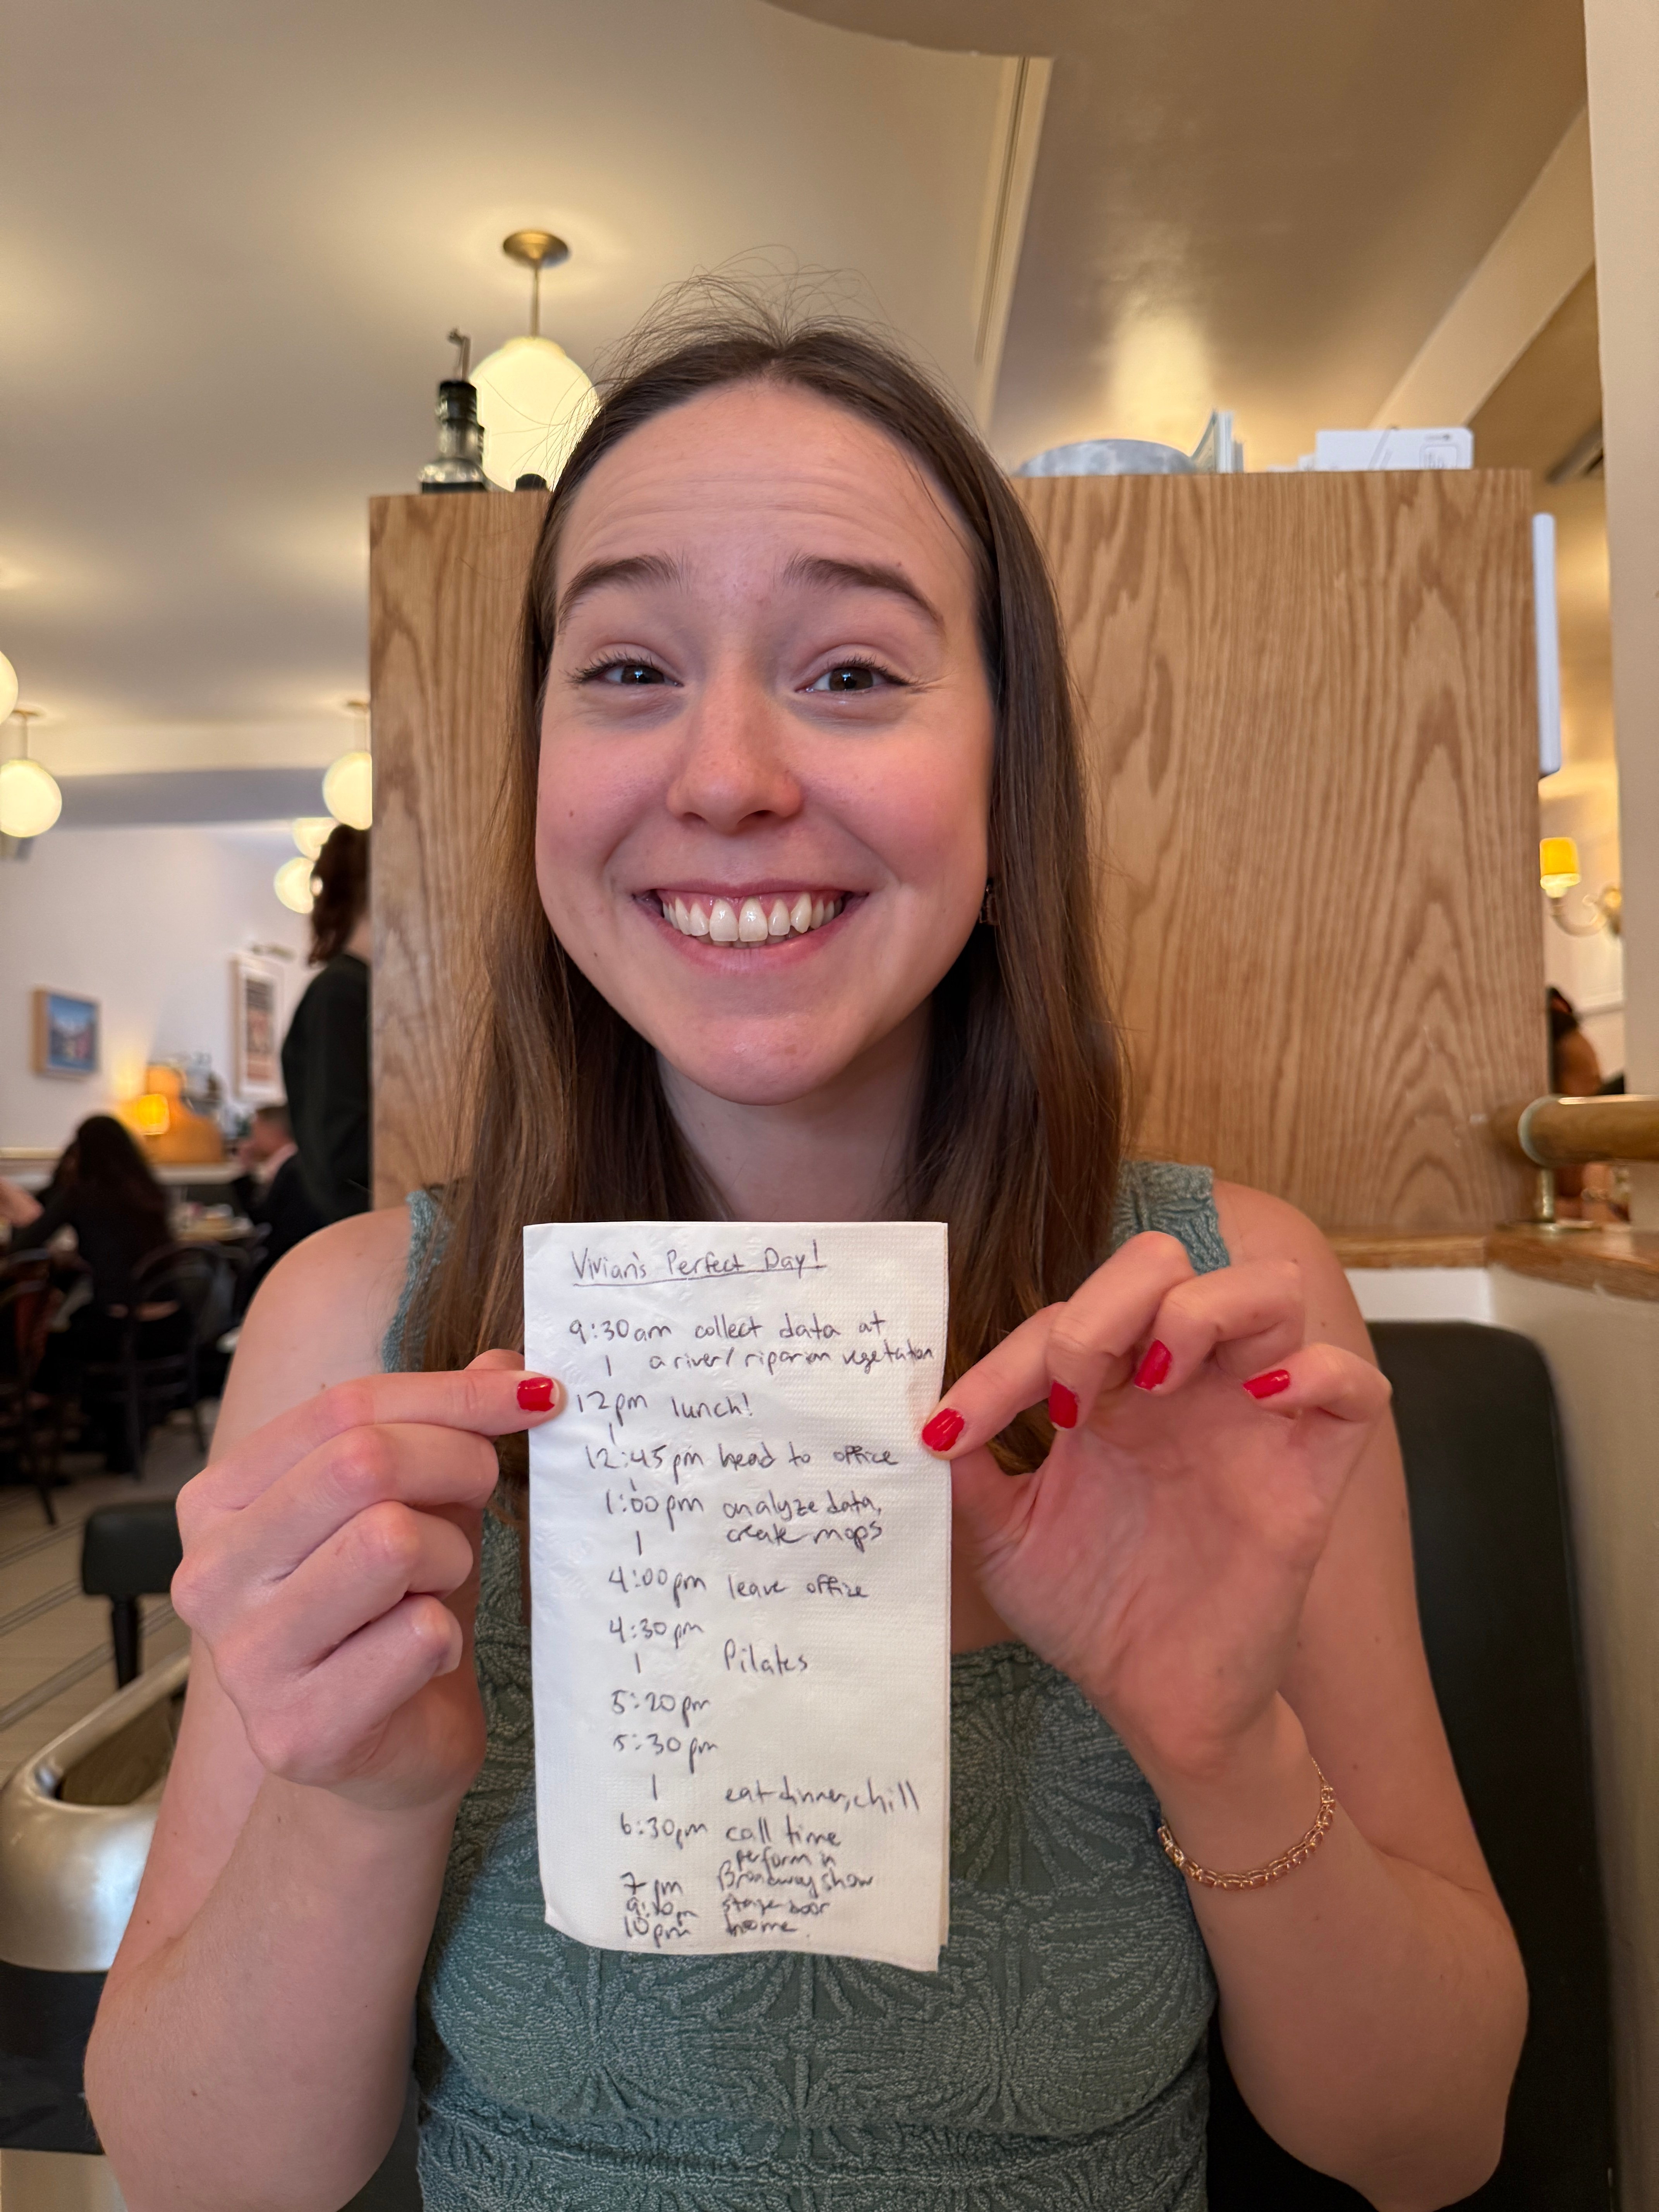 Vivian's Perfect Day!
9:30am collect data at
| a river/ riparian vegetation
12pm lunch!
|
12:45pm head to office
|
1:00pm analyze data,
| create maps
4:00pm leave office
4:30pm
| Pilates
5:20pm
5:30pm
| eat dinner, chill
6:30pm call time
perform in
7pm Broadway show
stage door
10pm home.